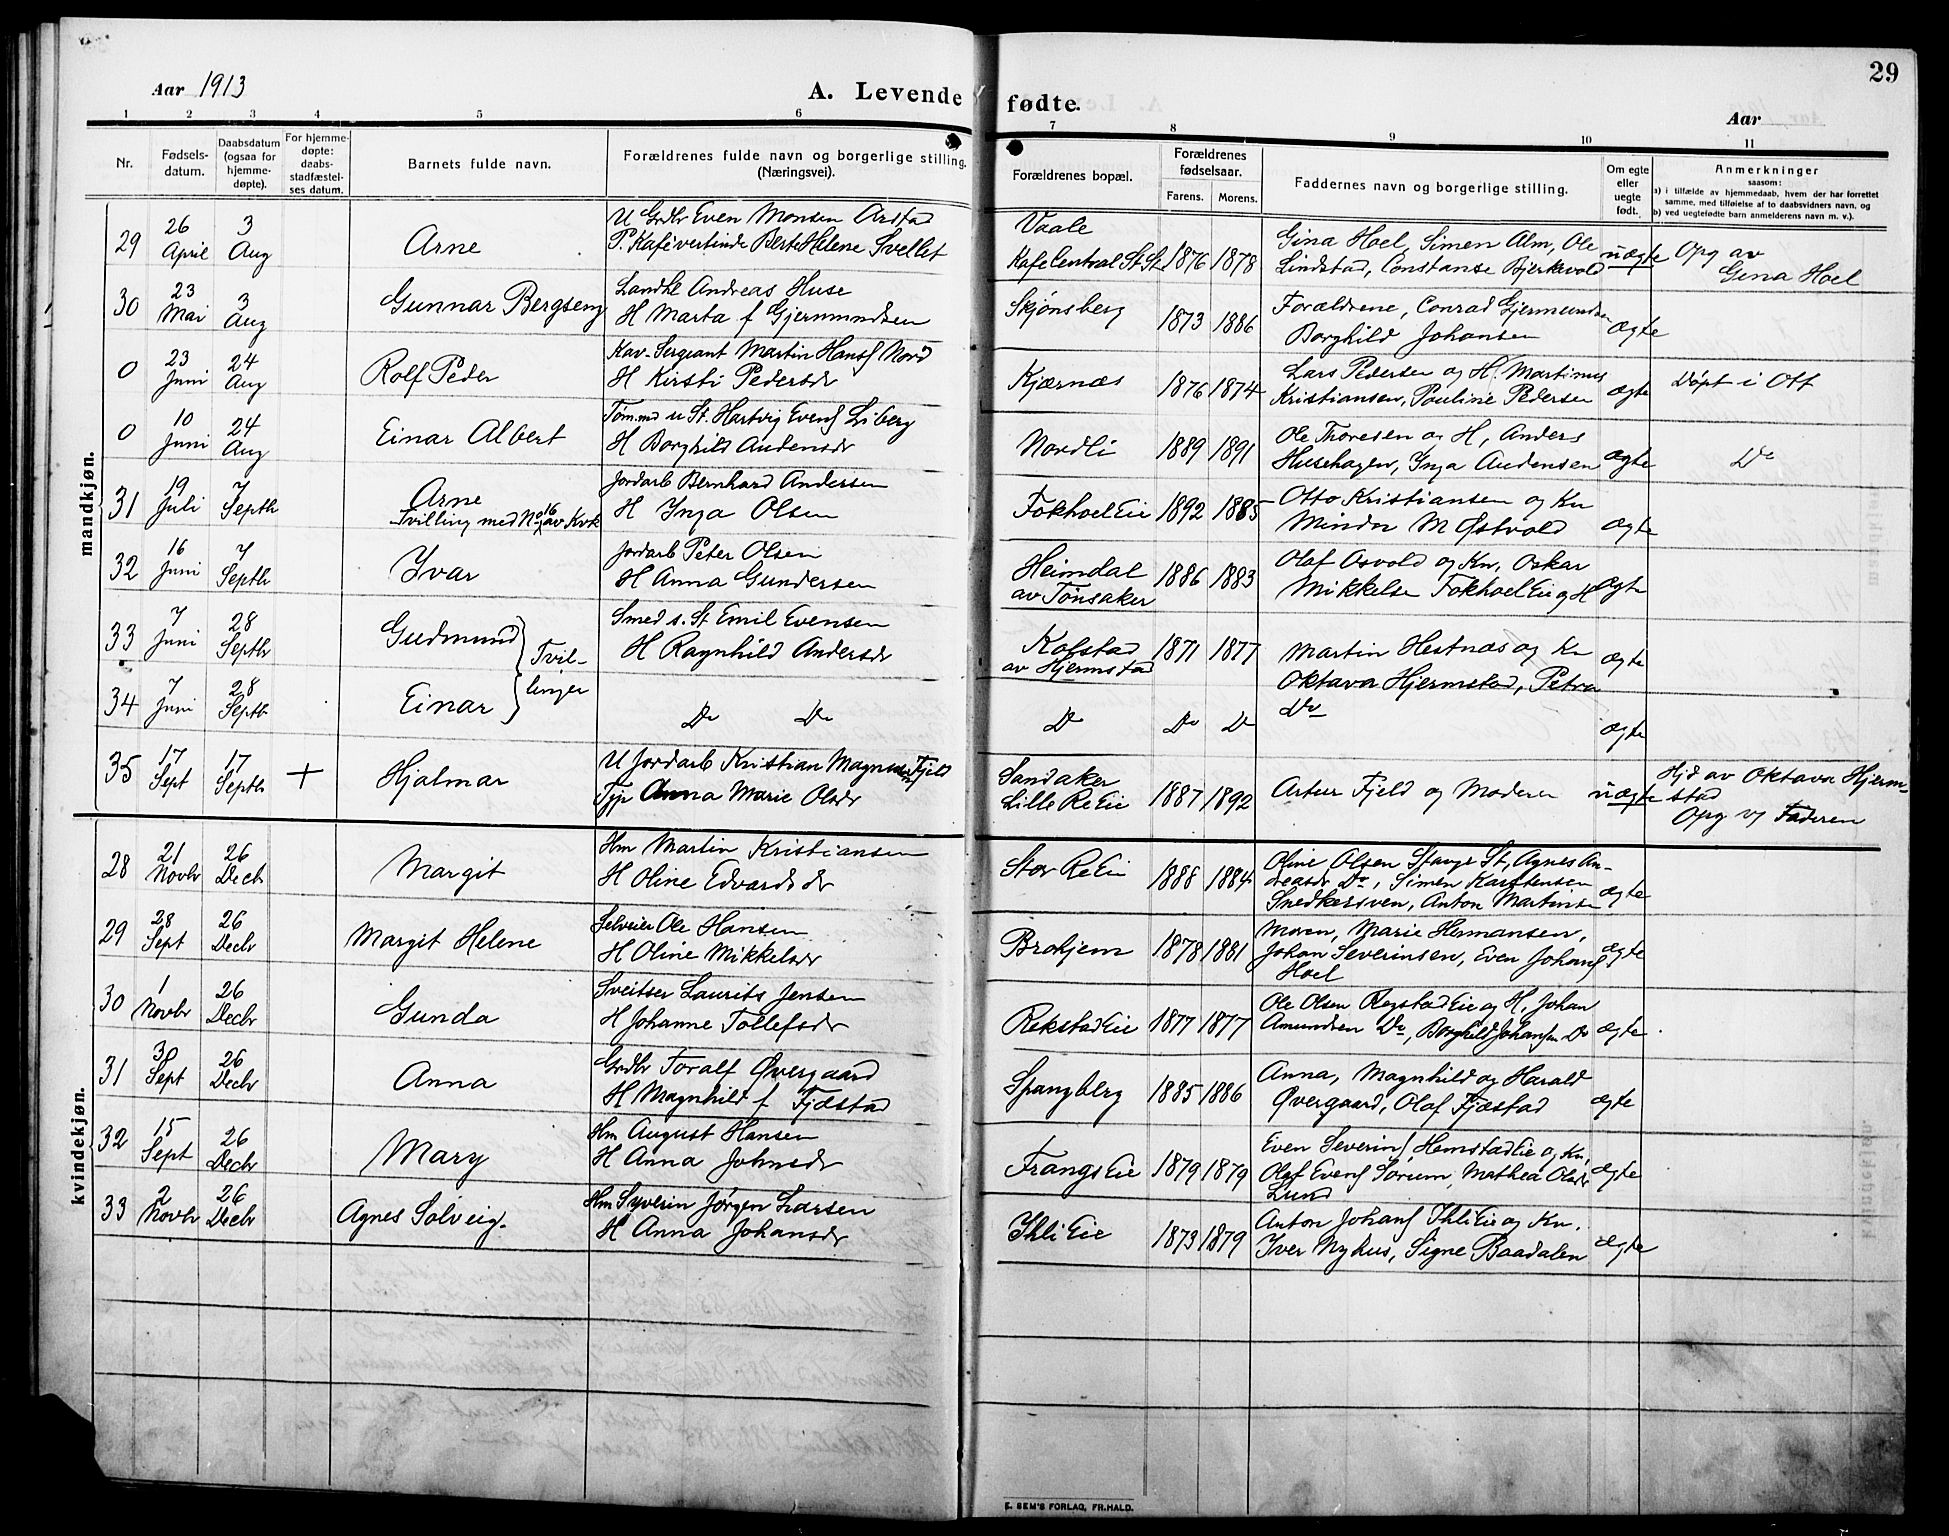 29
Aar 1913
A. Levende fødte.
Aar
1 2 3 4 5 6 7 8 9 10 11
Nr.
Fødsels-
datum.
Daabsdatum
(ogsaa for
hjemme-
døpte).
For hjemme-
døpte:
daabs-
stadfæstel-
ses datum.
Barnets fulde navn.
Forældrenes fulde navn og borgerlige stilling.
(Næringsvei).
Forældrenes bopæl.
Forældrenes
fødselsaar.
Farens. Morens.
Faddernes navn og borgerlige stilling.
Om egte
eller
uegte
født.
Anmerkninger
saasom:
a) i tilfælde av hjemmedaab, hvem der har forrettet
samme, med tilføielse af to daabsvidners navn, og
b) ved uegtefødte barn anmelderens navn m. v.).
mandkjøn.
29 26 April 3 Aug Arne
U Grdbr Even Monsen Arstad
P. Kafevertinde Berte Helene Svellet
Vaale
Kafe Central St. St. 1876 1878
Gina Hoel, Simen Alm, Ole
Lindstad, Constanse Bjerkvold
uægte
Opg av
Gina Hoel
30 23 Mai 3 Aug Gunnar Bergseng
Landhl Andreas Huse
H Marta f Gjermundsen
Skjønsberg 1873 1886
Forældrene, Conrad Gjermundsen
Borghild Johansen
ægte
0 23 Juni 24 Aug Rolf Peder
Kav-Sergeant Martin Hansf Nord
H Kirsti Pedersdr
Kjærnæs 1876 1874
Lars Pedersen og H. Martinus
Kristiansen, Pauline Pedersen
ægte
Døpt i Ott
0 10 Juni 24 Aug Einar Albert
Tømmd u St. Hartvig Evenf Liberg
H Borghild Audensdr
Nordli 1889 1891
Ole Thoresen og H, Anders
Husehagen, Inga Audensen
ægte
Do
31 19 Juli 7 Septb Arne
Tvilling med No 16 av Kvk
Jordarb Bernhard Andersen
H Inga Olsen
Fokhoel Eie 1892 1885
Otto Kristiansen og Kn
Minda M Østvold
ægte
32 16 Juni 7 Septbr Yvar
Jordarb Peter Olsen
H Anna Gundersen
Heimdal
av Tønsaker 1886 1883
Olaf Osvold og Kn, Oskar
Mikkelse Fokhoel Eie og H
ægte
33 7 Juni 28 Septbr Gudmund
Tvil-
linger
Smed s. St Emil Evensen
H Ragnhild Andersdr
Kolstad
av Hjermstad 1871 1877
Martin Hestnæs og Kn
Oktava Hjermstad, Petra
Do
ægte
34 7 Juni 28 Septb Einar
Do Do
Do Do Do
ægte
35 17 Sept 17 Septbr + Hjalmar
U Jordarb Kristian Magnusen Fjeld
Tjp Anna Marie Olsdr
Sandaker
Lille Re Eie 1887 1892
Artur Fjeld og Moderen
uægte
Hjd av Oktava Hjerm-
stad
Opg v/ Faderen
kvindekjøn.
28 21 Novbr 26 Decbr Margit
Hm Martin Kristiansen
H Oline Edvardsdr
Stor Re Eie 1888 1884
Oline Olsen Stange St, Agnes An-
dreasdr Do, Simen Karstensen
Snedkersven, Anton Martinsen
ægte
29 28 Sept 26 Decbr Margit Helene
Selveier Ole Hansen
H Oline Mikkelsdr
Brohjem 1878 1881
Moren, Marie Hermansen,
Johan Severinsen, Even Johansf
Hoel
ægte
30 1 Novbr 26 Decbr Gunda
Sveitser Laurits Jensen
H Johanne Tollefsdr
Rekstad Eie 1877 1877
Ole Olsen Rogstad Eie og H, Johan
Amundsen Do, Borghild Johansen Do
ægte
31 3 Sept 26 Decbr Anna
Grdbr Toralf Øvergaard
H Magnhild f Fjæstad
Spangberg 1885 1886
Anna, Magnhild og Harald
Øvergaard, Olaf Fjæstad
ægte
32 15 Sept 26 Decbr Mary
Hm August Hansen
H Anna Johnsdr
Frangs Eie 1879 1879
Even Severinf Hemstad Eie og Kn,
Olaf Evenf Sorum, Mathea Olsdr
Lund
ægte
33 2 Novbr 26 Decbr Agnes Solveig.
Hm Syverin Jørgen Larsen
H Anna Johansdr
Ihli Eie 1873 1879
Anton Johansf Ihli Eie og Kn.
Iver Nyhus, Signe Baadalen
ægte
E. SEM'S FORLAG, FR.HALD.